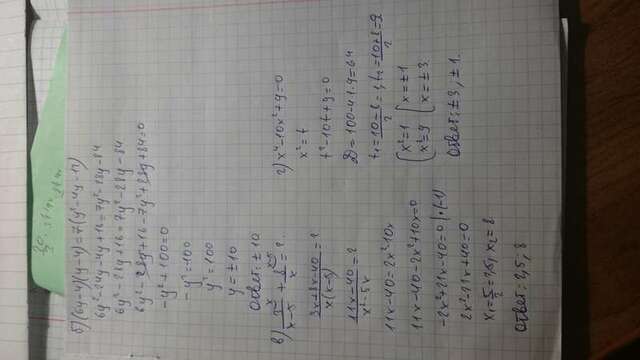 б) (6y-4)(y-4)=7(y²-4y-12)
6y²-24y-4y+16=7y²-28y-84
6y²-28y+16=7y²-28y-84
6y²-28y+16-7y²+28y+84=0
-y²+100=0
-y²=100
y²=100
y=±10
Ответ: ±10
в)
11x-40=2x²-10x
11x-40-2x²+10x=0
-2x²+21x-40=0 |·(-1)
2x²-21x+40=0
x₁=5/2=2,5; x₂=8
Ответ: 2,5; 8
г) x⁴-10x²+9=0
x²=t
t²-10t+9=0
D=100-4·1·9=64
x²=1 x=±1
x²=9 x=±3
Ответ: ±3; ±1.